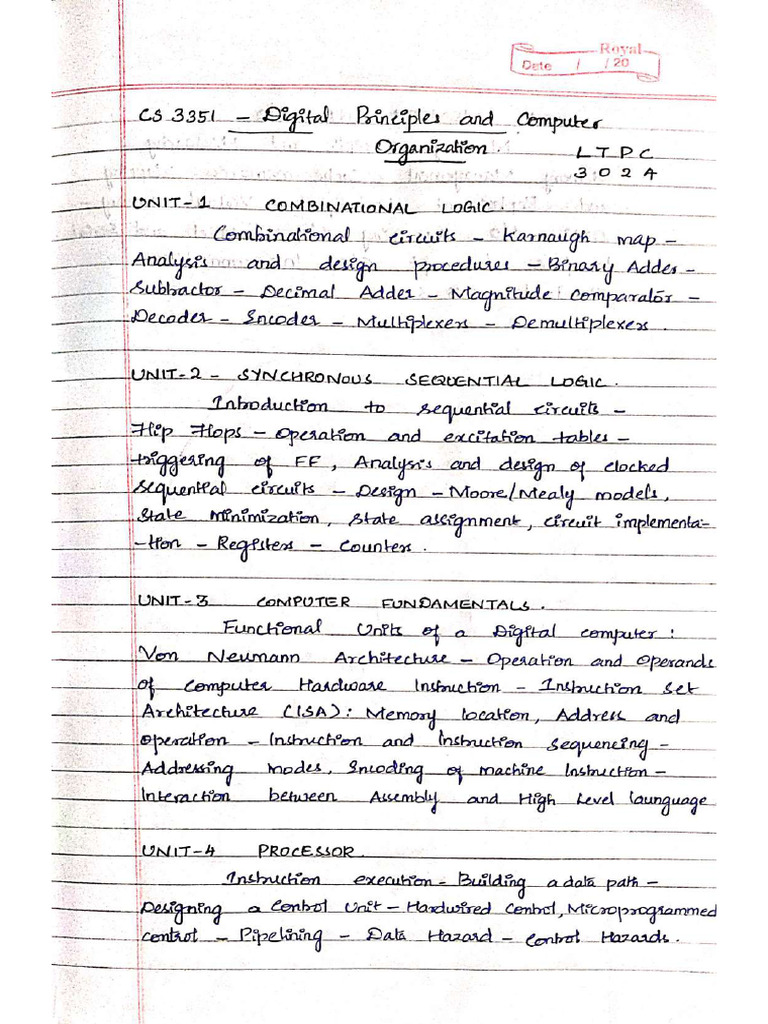 Royal
Date / / 20
CS 3351 - Digital Principles and Computer
Organization.
L T P C
3 0 2 4
UNIT-1 COMBINATIONAL LOGIC.
Combinational circuits - Karnaugh map -
Analysis and design procedures - Binary Adder -
Subtractor - Decimal Adder - Magnitude comparator -
Decoder - Encoder - Multiplexers - Demultiplexers.
UNIT-2 - SYNCHRONOUS SEQUENTIAL LOGIC.
Introduction to sequential circuits -
Flip Flops - Operation and excitation tables -
triggering of FF, Analysis and design of clocked
sequential circuits - Design - Moore/Mealy models,
State Minimization, State assignment, circuit implementa-
-tion - Registers - Counters.
UNIT-3 COMPUTER FUNDAMENTALS.
Functional Units of a Digital computer:
Von Neumann Architecture - Operation and Operands
of computer Hardware Instruction - Instruction set
Architecture (ISA): Memory location, Address and
operation - Instruction and Instruction sequencing -
Addressing modes, Encoding of machine Instruction -
Interaction between Assembly and High Level launguage
UNIT-4 PROCESSOR.
Instruction execution - Building a data path -
Designing a Control Unit - Hardwired Control, Microprogrammed
control - Pipelining - Data Hazard - Control Hazards.